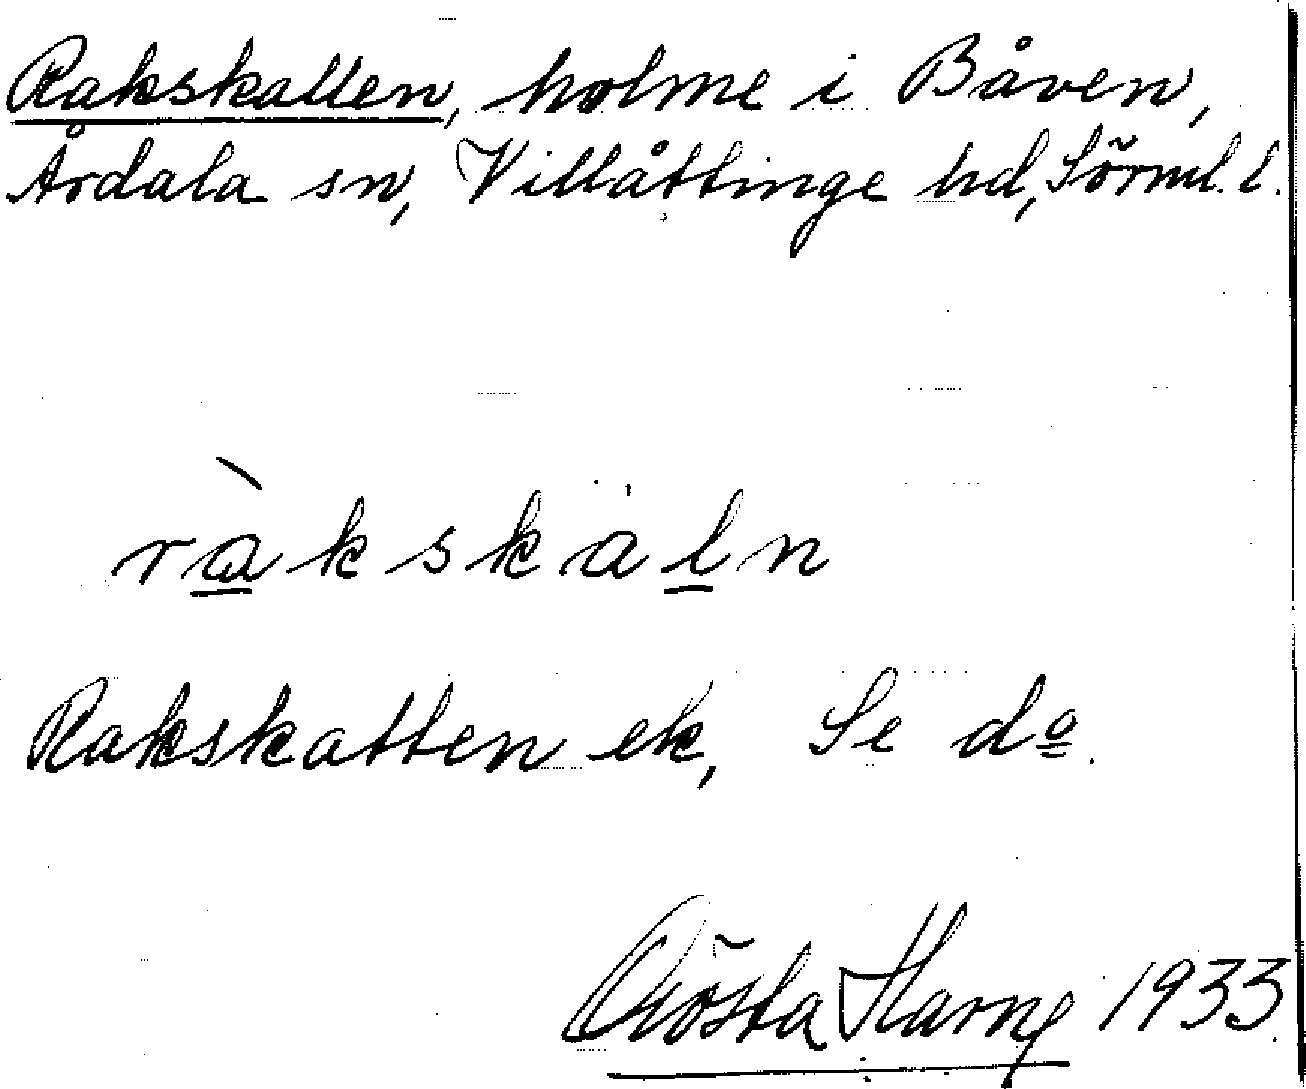 Rakskallen, holme i Båven,
Årdala sn, Villåttinge hd, Sörml. l.
ràkskaln
Rakskatten ek, Se dº.
Gösta Harne 1933